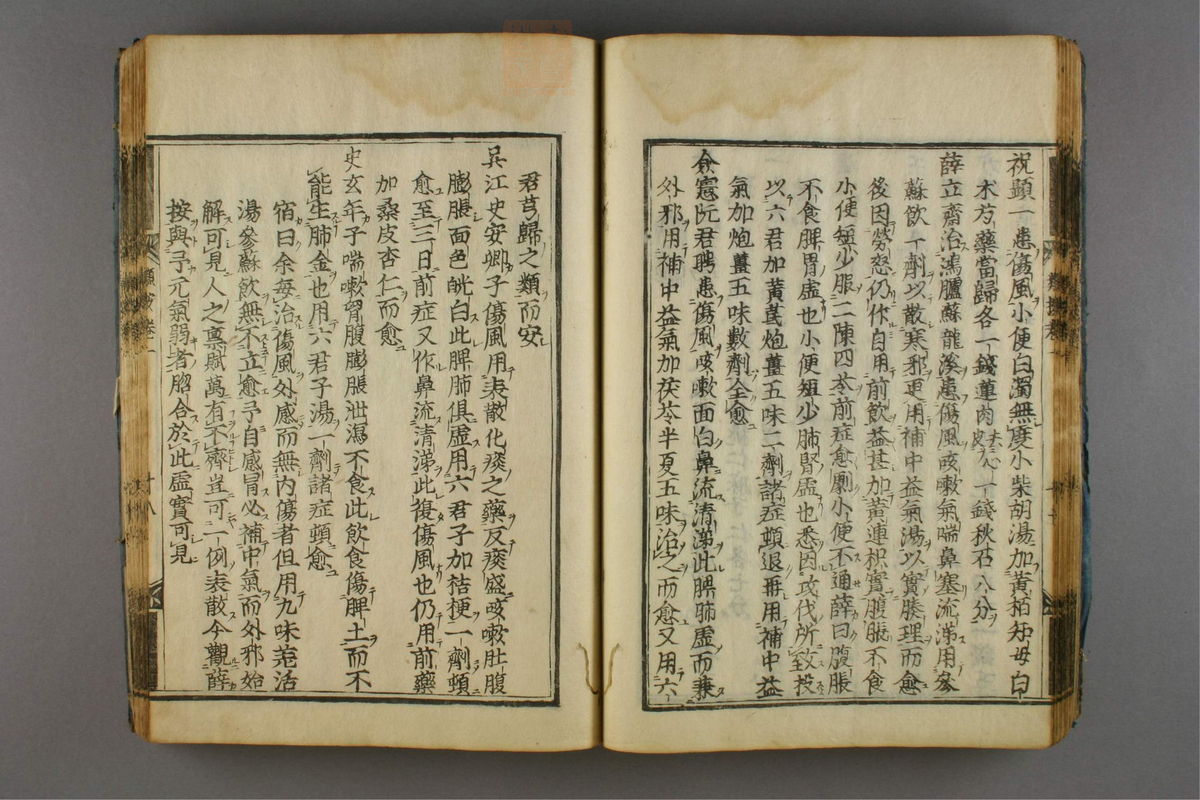 祝顕一患傷風小便白濁無度小柴胡湯加黄栢知母白
木方藥當歸各一錢蓮肉去心皮一錢秋石八分
薛立齋治鴻臚蘇龍溪患傷風咳嗽氣喘鼻塞流涕用參
蘇飲一劑以散寒邪更用補中益氣湯以實腠理而愈
後因勞怒仍作自用前飲益甚加黄連枳實腹脹不食
小便短少服二陳四苓前症愈劇小便不通薛曰腹脹
不食脾胃虚也小便短少肺腎虚也悉因攻伐所致投
以六君加黄芪炮薑五味二劑諸症頓退再用補中益
氣加炮薑五味數劑全愈
僉憲阮君聘患傷風咳嗽面白鼻流清涕此脾肺虚而兼
外邪用補中益氣加茯苓半夏五味治之而愈又用六
君芎歸之類而安
吳江史安卿子傷風用表散化痰之藥反痰盛咳嗽肚腹
膨脹面色㿠白此脾肺俱虚用六君子加桔梗一劑頓
愈至三日前症又作鼻流清涕此復傷風也仍用前藥
加桑皮杏仁而愈
史玄年子喘嗽胷腹膨脹泄瀉不食此飲食傷脾土而不
能生肺金也用六君子湯一劑諸症頓愈
宿曰余毎治傷風外感而無内傷者但用九味羌活
湯參蘇飲無不立愈予自感冒必補中氣而外邪始
解可見人之禀賦萬有不齊豈可一例表散今觀薛
按與予元氣弱者脗合於此虚實可見
類按卷一
十八